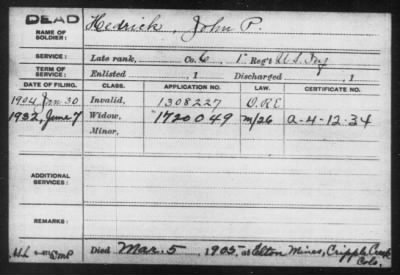 DEAD
NAME OF SOLDIER: Hedrick, John P.
SERVICE: Late rank, Co. C, 1" Reg't U.S. Inf
TERM OF SERVICE: Enlisted , 1 Discharged , 1
DATE OF FILING. CLASS. APPLICATION NO. LAW. CERTIFICATE NO.
1904 Jan. 30 Invalid, 1308227 O.R.E.
1932, June 7 Widow, 1720049 m/26 a-4-12.34
Minor,
ADDITIONAL SERVICES:
REMARKS:
Died Mar. 5, 1905, at Elton Mines, Cripple Creek
Colo.